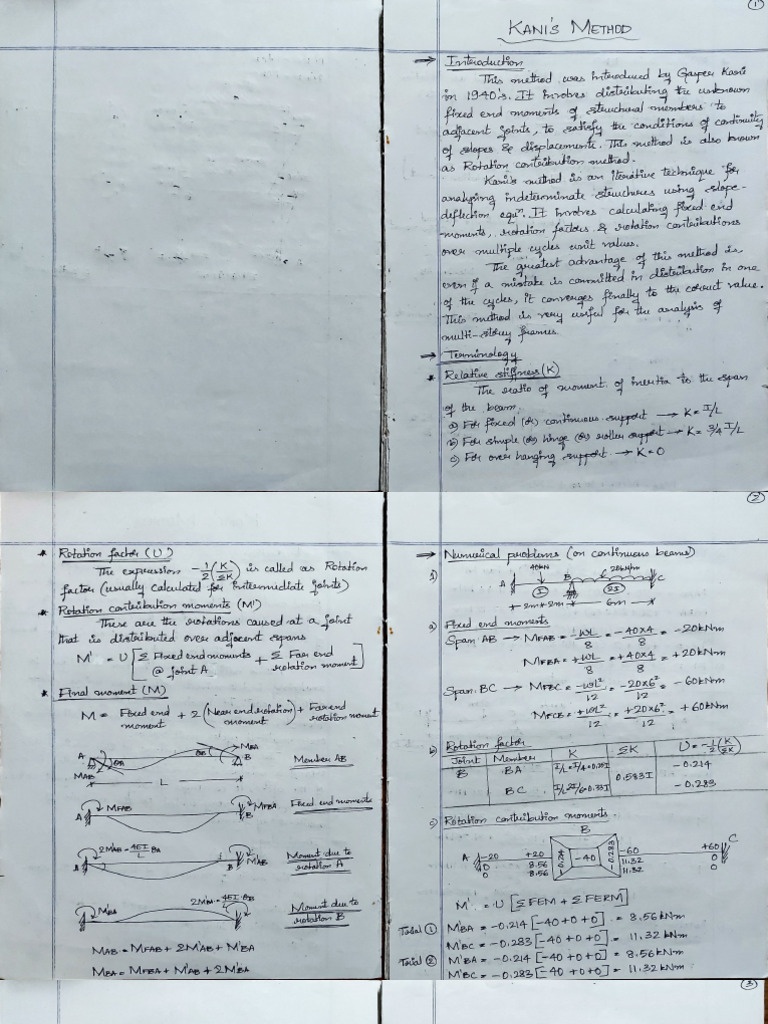 1
KANI'S METHOD
→ Introduction
This method was introduced by Gasper Kani
in 1940's. It involves distributing the unknown
fixed end moments of structural members to
adjacent joints, to satisfy the conditions of continuity
of slopes & displacements. This method is also known
as Rotation contribution method.
Kani's method is an iterative technique for
analysing indeterminate structures using slope-
deflection equⁿ. It involves calculating fixed end
moments, rotation factors & rotation contributions
over multiple cycles until values.
The greatest advantage of this method is
even if a mistake is committed in distribution in one
of the cycles, it converges finally to the correct value.
This method is very useful for the analysis of
multi-storey frames
→ Terminology
* Relative stiffness (K)
The ratio of moment of inertia to the span
of the beam.
a) For fixed (or) continuous support → K = I/L
b) For simple (or) hinge (or) roller support → K = 3/4 I/L
c) For over hanging support → K = 0
* Rotation factor (U)
The expression -1/2 (K/ΣK) is called as Rotation
factor (usually calculated for intermediate joints)
* Rotation contribution moments (M')
These are the rotations caused at a joint
that is distributed over adjacent spans
M' = U [Σ Fixed end moments @ joint A + Σ Far end rotation moment]
* Final moment (M)
M = Fixed end moment + 2 (Near end rotation moment) + Far end rotation moment
A θA θB MBA B
MAB L
Member AB
A MFAB MFBA B
Fixed end moments
2M'AB = 4EI/L θA
A B M'AB
Moment due to
rotation A
M'BA 2M'BA = 4EI θB
Moment due to
rotation B
MAB = MFAB + 2M'AB + M'BA
MBA = MFBA + M'AB + 2M'BA
2
→ Numerical problems (on continuous beams)
1)
40kN 20kN/m
A I B 2I C
2m 2m 6m
a) Fixed end moments
Span AB → MFAB = -WL/8 = -40x4/8 = -20kNm
MFBA = +WL/8 = +40x4/8 = +20kNm
Span BC → MFBC = -WL²/12 = -20x6²/12 = -60kNm
MFCB = +WL²/12 = +20x6²/12 = +60kNm
b) Rotation factor
Joint Member K ΣK U = -1/2 (K/ΣK)
B BA I/L = I/4 = 0.25I 0.583I -0.214
BC I/L = 2I/6 = 0.33I -0.283
c) Rotation contribution moments
B
A -20 +20 -0.214 -40 -0.283 -60 +60 C
0 8.56 11.32 0
0 8.56 11.32 0
M' = U [ΣFEM + ΣFERM]
Trial 1 M'BA = -0.214 [-40+0+0] = 8.56kNm
M'BC = -0.283 [-40+0+0] = 11.32 kNm
Trial 2 M'BA = -0.214 [-40+0+0] = 8.56kNm
M'BC = -0.283 [-40+0+0] = 11.32kNm
3